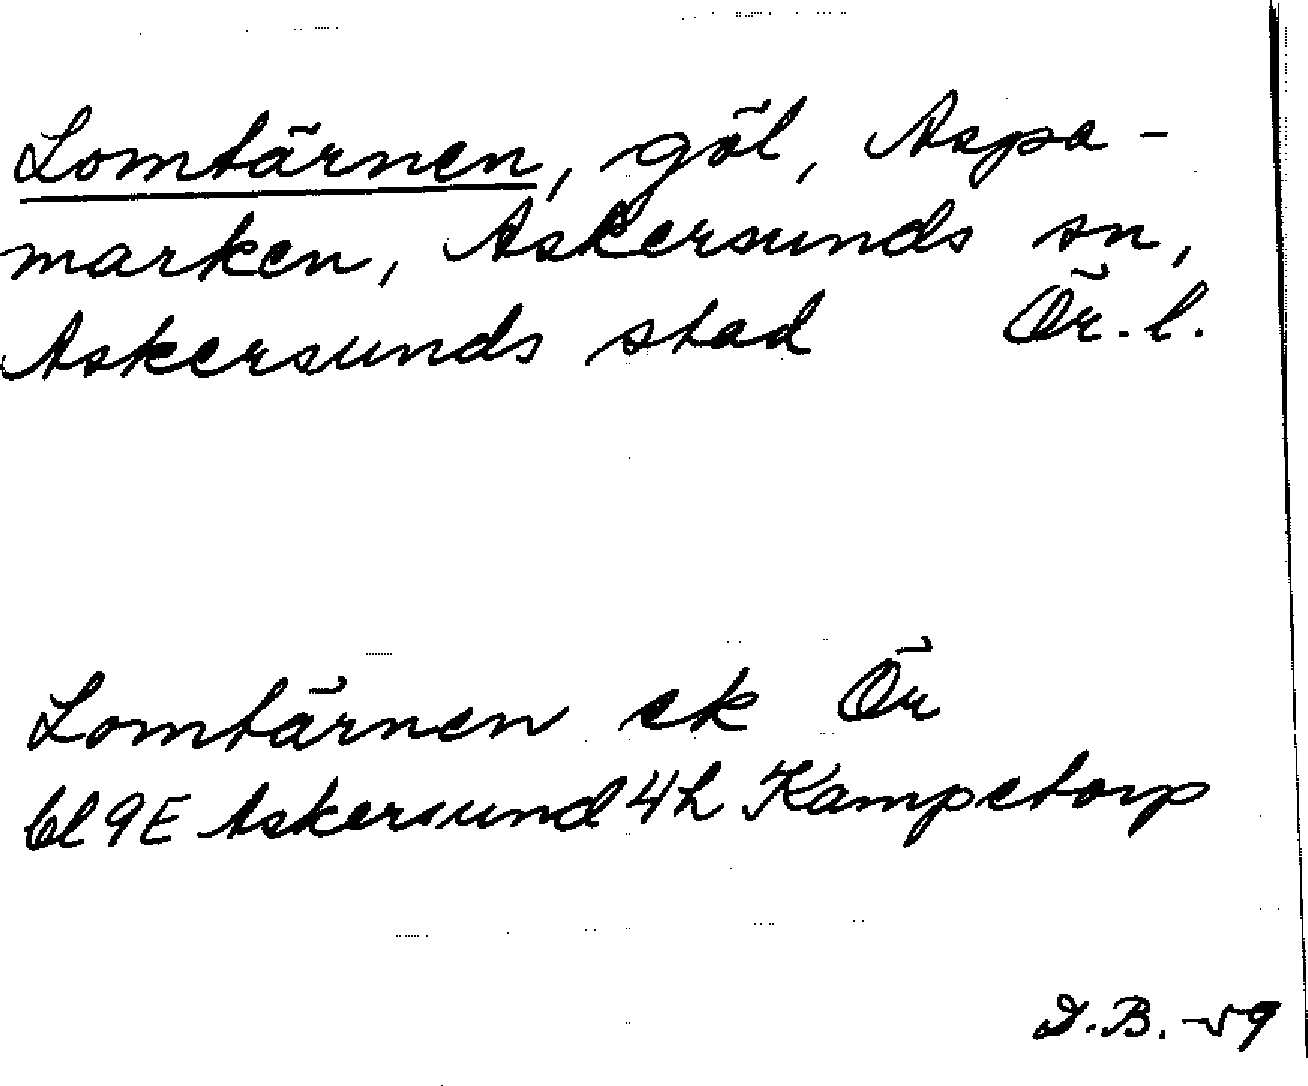 Lomtärnen, göl, Aspa-
marken, Askersunds sn,
Askersunds stad Ör. l.
Lomtärnen ek Ör
bl 9E Askersund 4h Kampetorp
D.B. -59